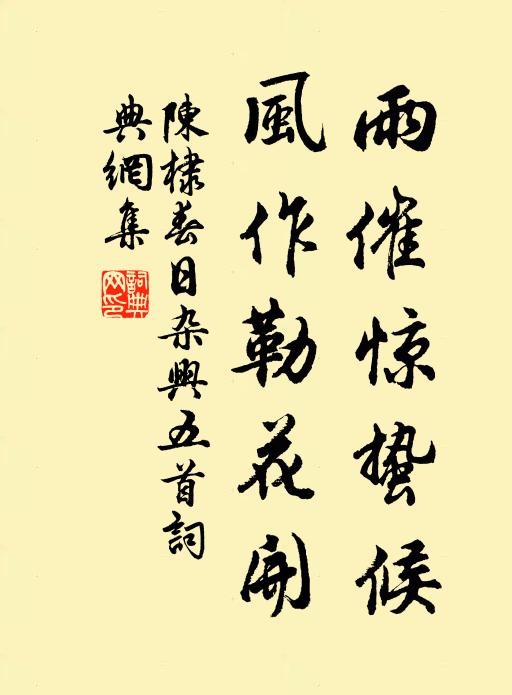 雨催惊蛰候
風作勒花開
陳棣春日杂興五首詞
典網集
詞典網印